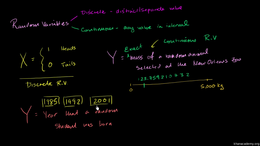 Random Variables
Discrete - distinct/separate values
Continuous - any value in interval
X = { 1 Heads
0 Tails
Discrete R.V
Exact Continuous R.V
Y = mass of a random animal
selected at the New Orleans zoo
0
5,000 kg
1985 1992 2001
Y = Year that a random
student was born
khanacademy.org